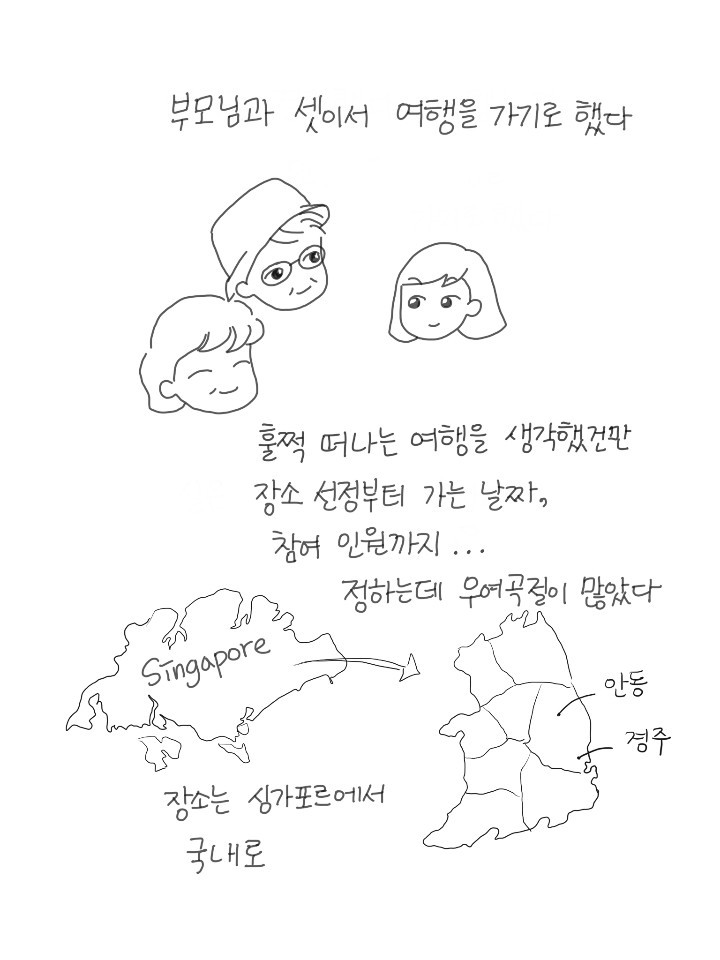 부모님과 셋이서 여행을 가기로 했다
훌쩍 떠나는 여행을 생각했건만
장소 선정부터 가는 날짜,
참여 인원까지...
정하는데 우여곡절이 많았다
Singapore
안동
경주
장소는 싱가포르에서
국내로